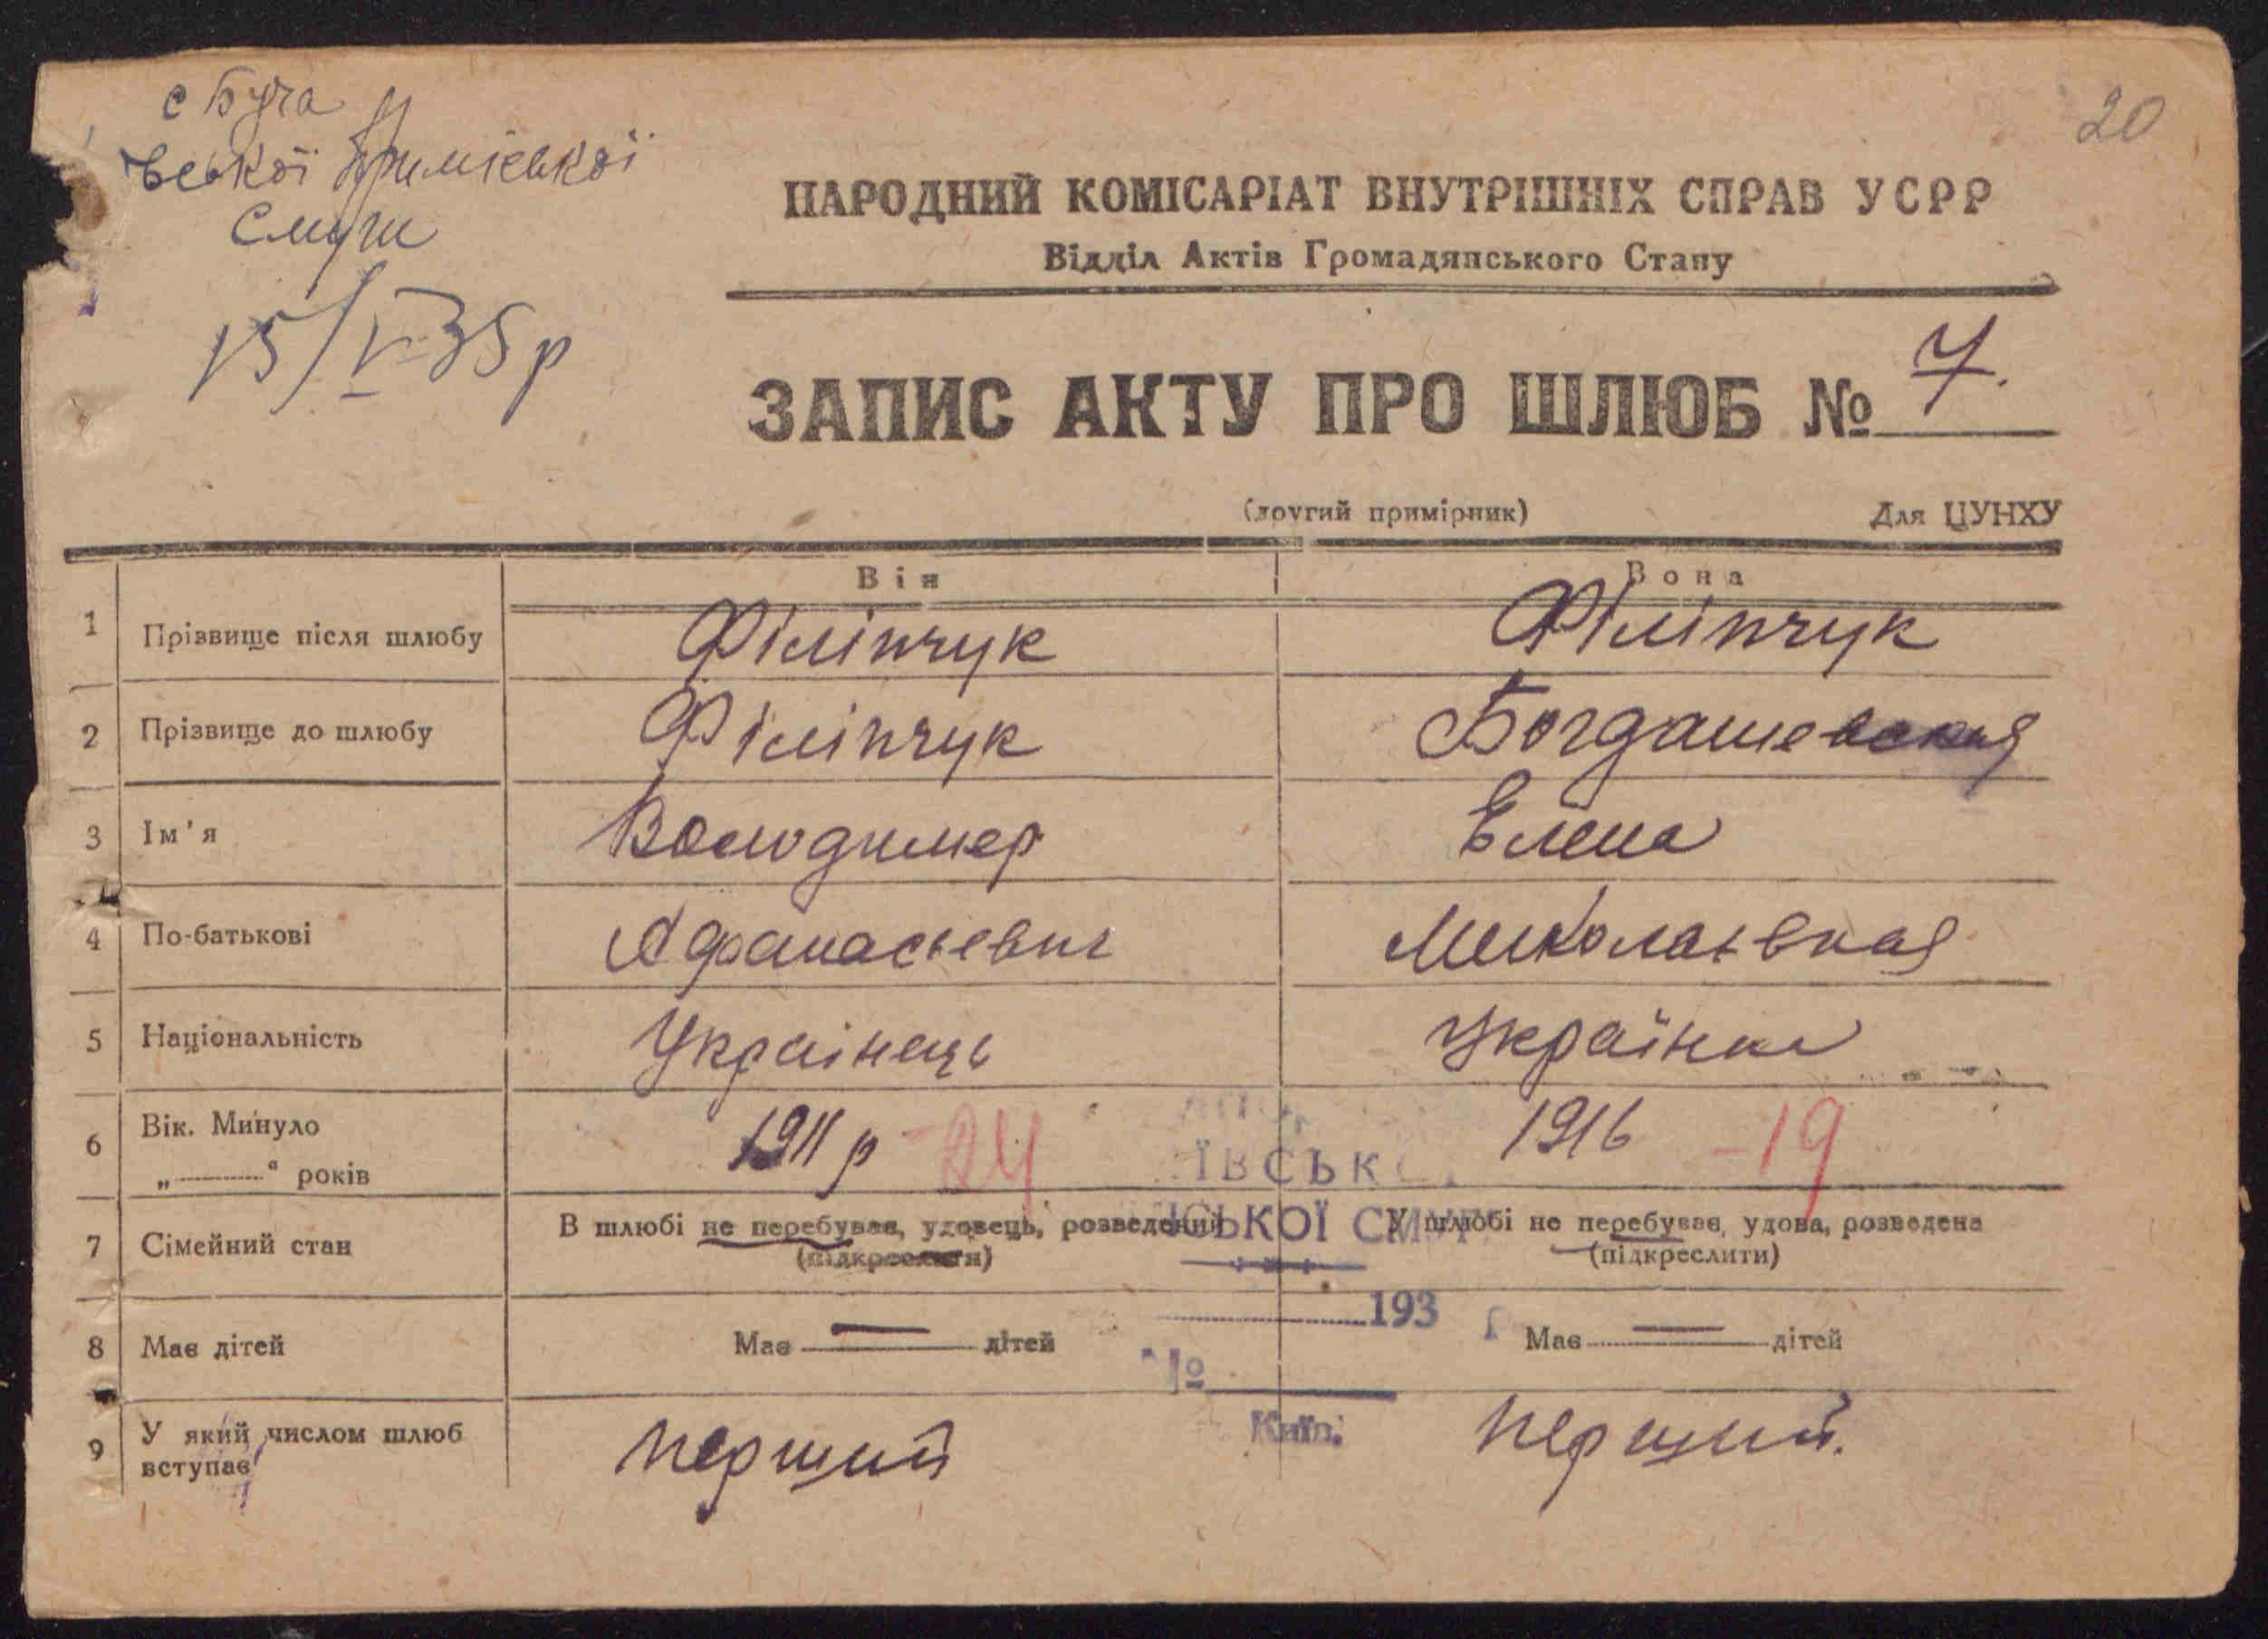 с Буча
20
вської приміської
смуги
15/V-35р
НАРОДНИЙ КОМІСАРІАТ ВНУТРІШНІХ СПРАВ УСРР
Відділ Актів Громадянського Стану
ЗАПИС АКТУ ПРО ШЛЮБ № 7.
(другий примірник) Для ЦУНХУ
Він Вона
1 Прізвище після шлюбу Філіпчук Філіпчук
2 Прізвище до шлюбу Філіпчук Богдашевская
3 Ім'я Володимер Елена
4 По-батькові Афанасьевич Миколаєвная
5 Національність Українець Українка
6 Вік. Минуло 1911 р 24 1916 -19
„ “ років
ЇВСЬК
7 Сімейний стан В шлюбі не перебував, удовець, розведений У шлюбі не перебуває, удова, розведена
(підкреслити) (підкреслити)
СЬКОЇ СМУ
193 р
8 Має дітей Має — дітей Має — дітей
№
Київ.
9 У який числом шлюб вступає перший перщий.